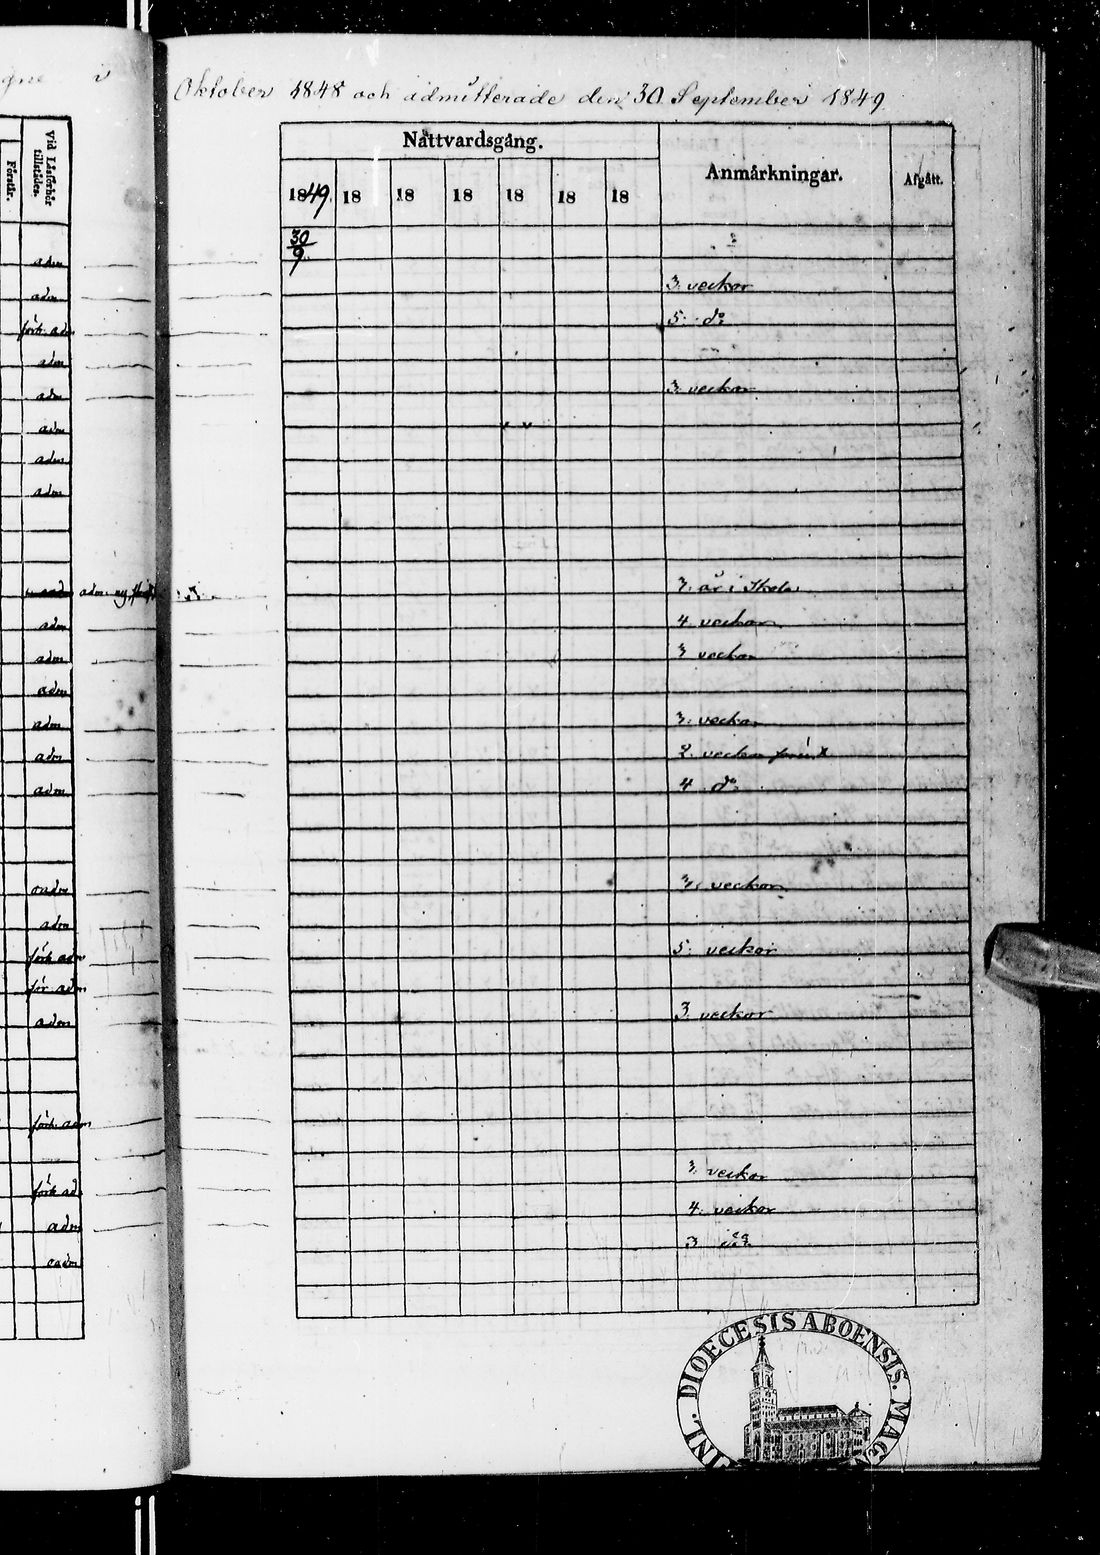 Oktober 1848 och admitterade den 30 September 1849
Vid Läsförhör tillstådes.
Förstår.
Nattvardsgång.
Anmärkningar.
Afgått.
1849. 18 18 18 18 18 18
30/9
adm
adm 3. veckor
förh. adm 5. do
adm
adm 3. veckor
adm
adm
adm
adm. ny 3. år i Skola
adm 4. veckor
adm 3 veckor
adm
adm 3. veckor
adm 2. veckor
adm 4 do
oadm 3. veckor
adm
förh adm 5. veckor
för. adm
adm 3 veckor
förh. adm
förh ad. 3. veckor
adm 4. veckor
oadm 3
DIOECESIS ABOENSIS. MAG
INL.